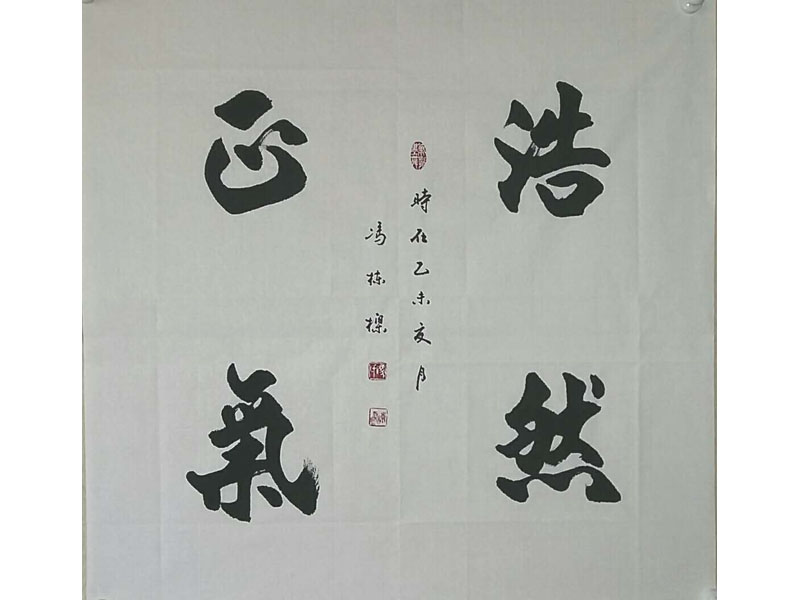 浩然
正氣
時在乙未夏月
冯栋樑